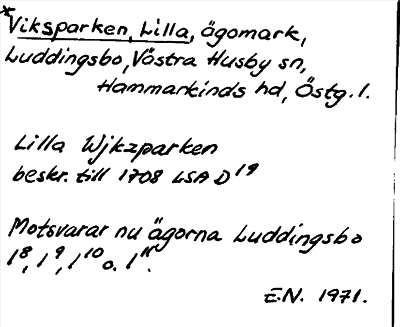 *Viksparken, Lilla, ägomark,
Luddingsbo, Västra Husby sn,
Hammarkinds hd, Östg. l.
Lilla Wjkzparken
beskr. till 1708 LSA D¹⁹
Motsvarar nu ägorna Luddingsbo
1⁸, 1⁹, 1¹⁰ o. 1¹¹.
E.N. 1971.